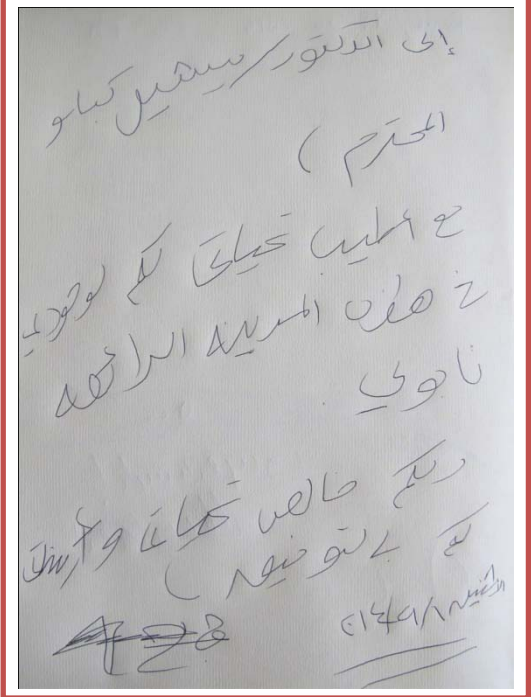 إلى الدكتور / ميشيل كبابو
المحترم )
مع أطيب تحياتي لكم لوجودي
في هذه المدينة الرائعة
نابولي
ولكم خالص تحياتي وأمنياتي
لكم بالتوفيق )
الاثنين ٢٠١٤/٩/٨